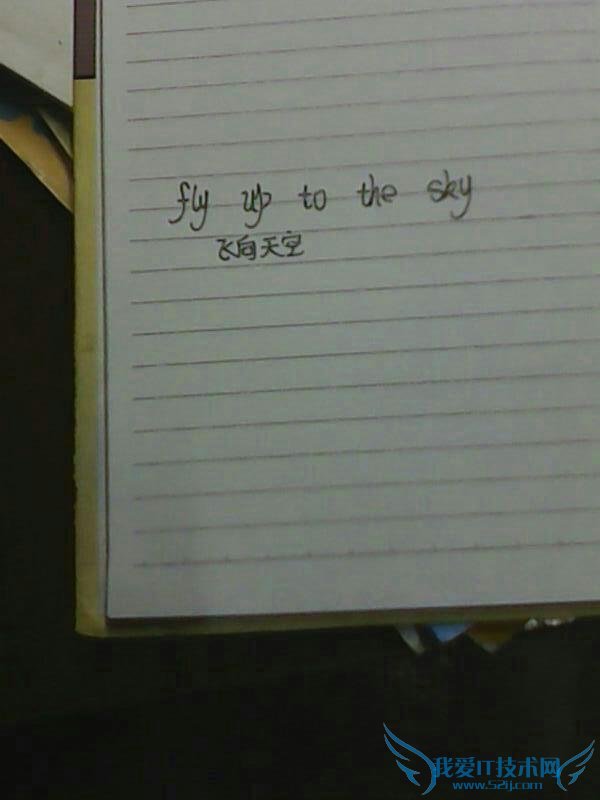 fly up to the sky
飞向天空
我爱IT技术网
www.52ij.com